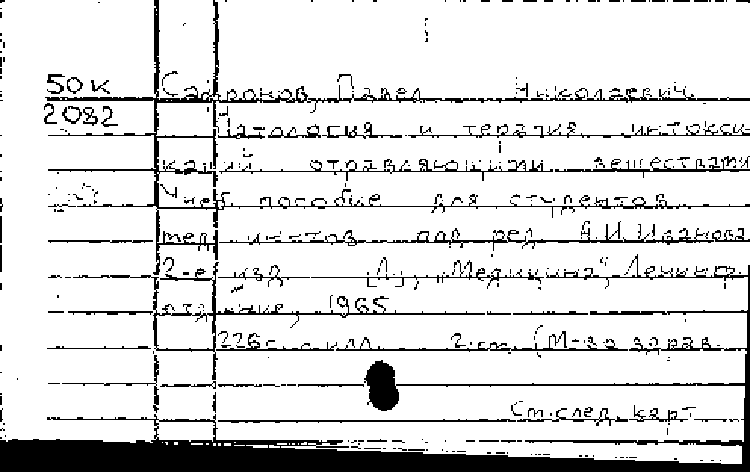 50К Сафронов, Павел Николаевич.
2082 Патология и терапия интокси-
каций отравляющими веществами
Учеб. пособие для студентов
мед. ин-тов под ред. А.И. Иванова
2-е изд. [Л.], „Медицина", Ленингр.
отд-ние, 1965.
226с. с илл. 2 см. (М-во здрав.
См. след. карт